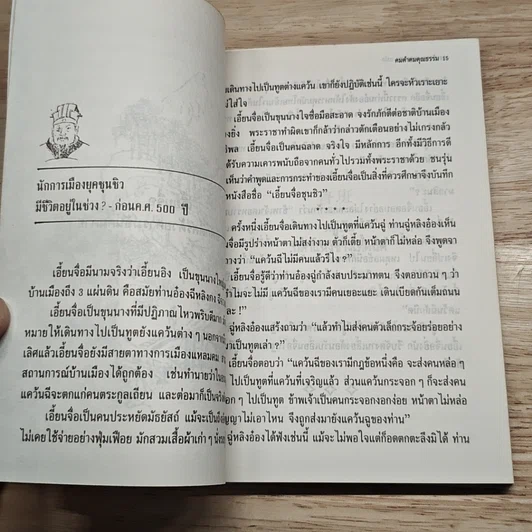 นักการเมืองยุคชุนชิว
มีชีวิตอยู่ในช่วง ? - ก่อนค.ศ. 500 ปี
เอี้ยนจื่อมีนามจริงว่าเอี้ยนอิง เป็นขุนนาง
บ้านเมืองถึง 3 แผ่นดิน คือสมัยท่านอ๋องฉีหลิงกง
เอี้ยนจื่อเป็นขุนนางที่มีปฏิภาณไหวพริบดีมาก
หมายให้เดินทางไปเป็นทูตยังแคว้นต่าง ๆ
เลิศแล้วเอี้ยนจื่อยังมีสายตาทางการเมืองแหลมคม
สถานการณ์บ้านเมืองได้ถูกต้อง เช่นทำนายว่า
แคว้นฉีจะตกแก่คนตระกูลเถียน และต่อมาก็เป็น
เอี้ยนจื่อเป็นคนประหยัดมัธยัสถ์ แม้จะเป็น
ไม่เคยใช้จ่ายอย่างฟุ่มเฟือย มักสวมเสื้อผ้าเก่า ๆ
คมคำคมคุณธรรม 15
เดินทางไปเป็นทูตต่างแคว้น เขาก็ยังปฏิบัติเช่นนี้ ใครจะหัวเราะเยาะ
ไม่ใส่ใจ
เอี้ยนจื่อเป็นขุนนางใจซื่อมือสะอาด จงรักภักดีต่อชาติบ้านเมือง
ยิ่ง พระราชาทำผิดเขาก็กล้าว่ากล่าวตักเตือนอย่างไม่เกรงกลัว
เอี้ยนจื่อเป็นคนฉลาด จริงใจ มีหลักการ อีกทั้งมีวิธีการดี
ได้รับความเคารพนับถือจากคนทั่วไปรวมทั้งพระราชาด้วย ชนรุ่น
เห็นว่าคำพูดและการกระทำของเอี้ยนจื่อเป็นสิ่งที่ควรศึกษาจึงบันทึก
หนังสือชื่อ “เอี้ยนจื่อชุนชิว”
ครั้งหนึ่งเอี้ยนจื่อเดินทางไปเป็นทูตที่แคว้นฉู่ ท่านฉู่หลิงอ๋องเห็น
จื่อมีรูปร่างหน้าตาไม่สง่างาม ตัวก็เตี้ย หน้าตาก็ไม่หล่อ จึงพูดจา
ว่า “แคว้นฉีไม่มีคนแล้วรึไง ?”
เอี้ยนจื่อรู้ดีว่าท่านอ๋องฉู่กำลังสบประมาทตน จึงตอบกวน ๆ ว่า
ทำไมจะไม่มี แคว้นฉีของเรามีคนเยอะแยะ เดินเบียดกันเต็มถนน
ละ !”
ฉู่หลิงอ๋องแสร้งถามว่า “แล้วทำไมส่งคนตัวเล็กกระจ้อยร่อยอย่าง
มาเป็นทูตเล่า ?”
เอี้ยนจื่อตอบว่า “แคว้นฉีของเรามีกฎข้อหนึ่งคือ จะส่งคนหล่อ ๆ
ไปเป็นทูตที่แคว้นที่เจริญแล้ว ส่วนแคว้นกระจอก ๆ ก็จะส่งคน
ไปเป็นทูต ข้าพเจ้าเป็นคนกระจอกงอกง่อย หน้าตาไม่หล่อ
ปัญญาไม่เอาไหน จึงถูกส่งมายังแคว้นฉู่ของท่าน”
ฉู่หลิงอ๋องได้ฟังเช่นนี้ แม้จะไม่พอใจแต่ก็อดตกตะลึงมิได้ ท่าน